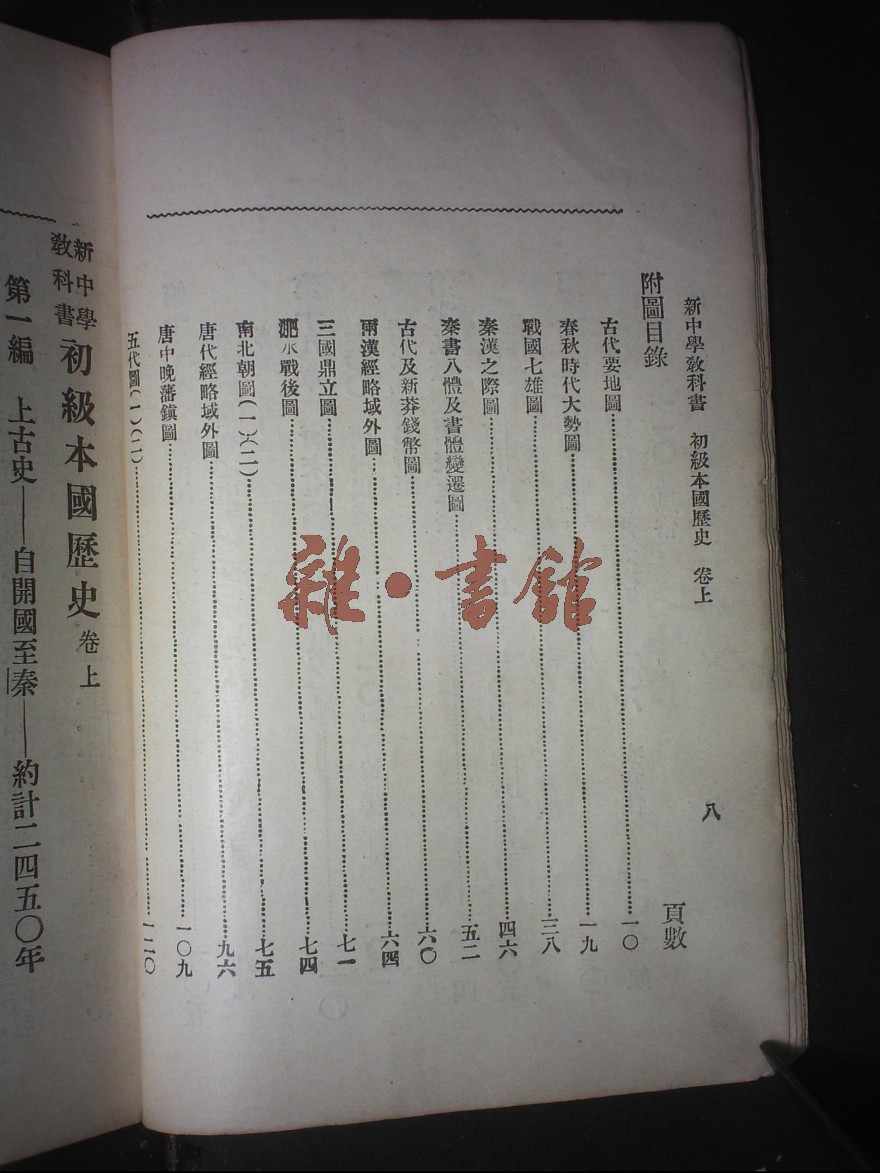 新中學教科書 初級本國歷史 卷上
八
附圖目錄 頁數
古代要地圖……一〇
春秋時代大勢圖……一九
戰國七雄圖……三八
秦漢之際圖……四六
秦書八體及書體變遷圖……五二
古代及新莽錢幣圖……六〇
兩漢經略域外圖……六四
三國鼎立圖……七一
淝水戰後圖……七四
南北朝圖(一)(二)……七五
唐代經略域外圖……九六
唐中晚藩鎮圖……一〇九
五代圖(一)(二)……一二〇
新中學教科書 初級本國歷史 卷上
第一編 上古史——自開國至秦——約計二四五〇年
雜·書館